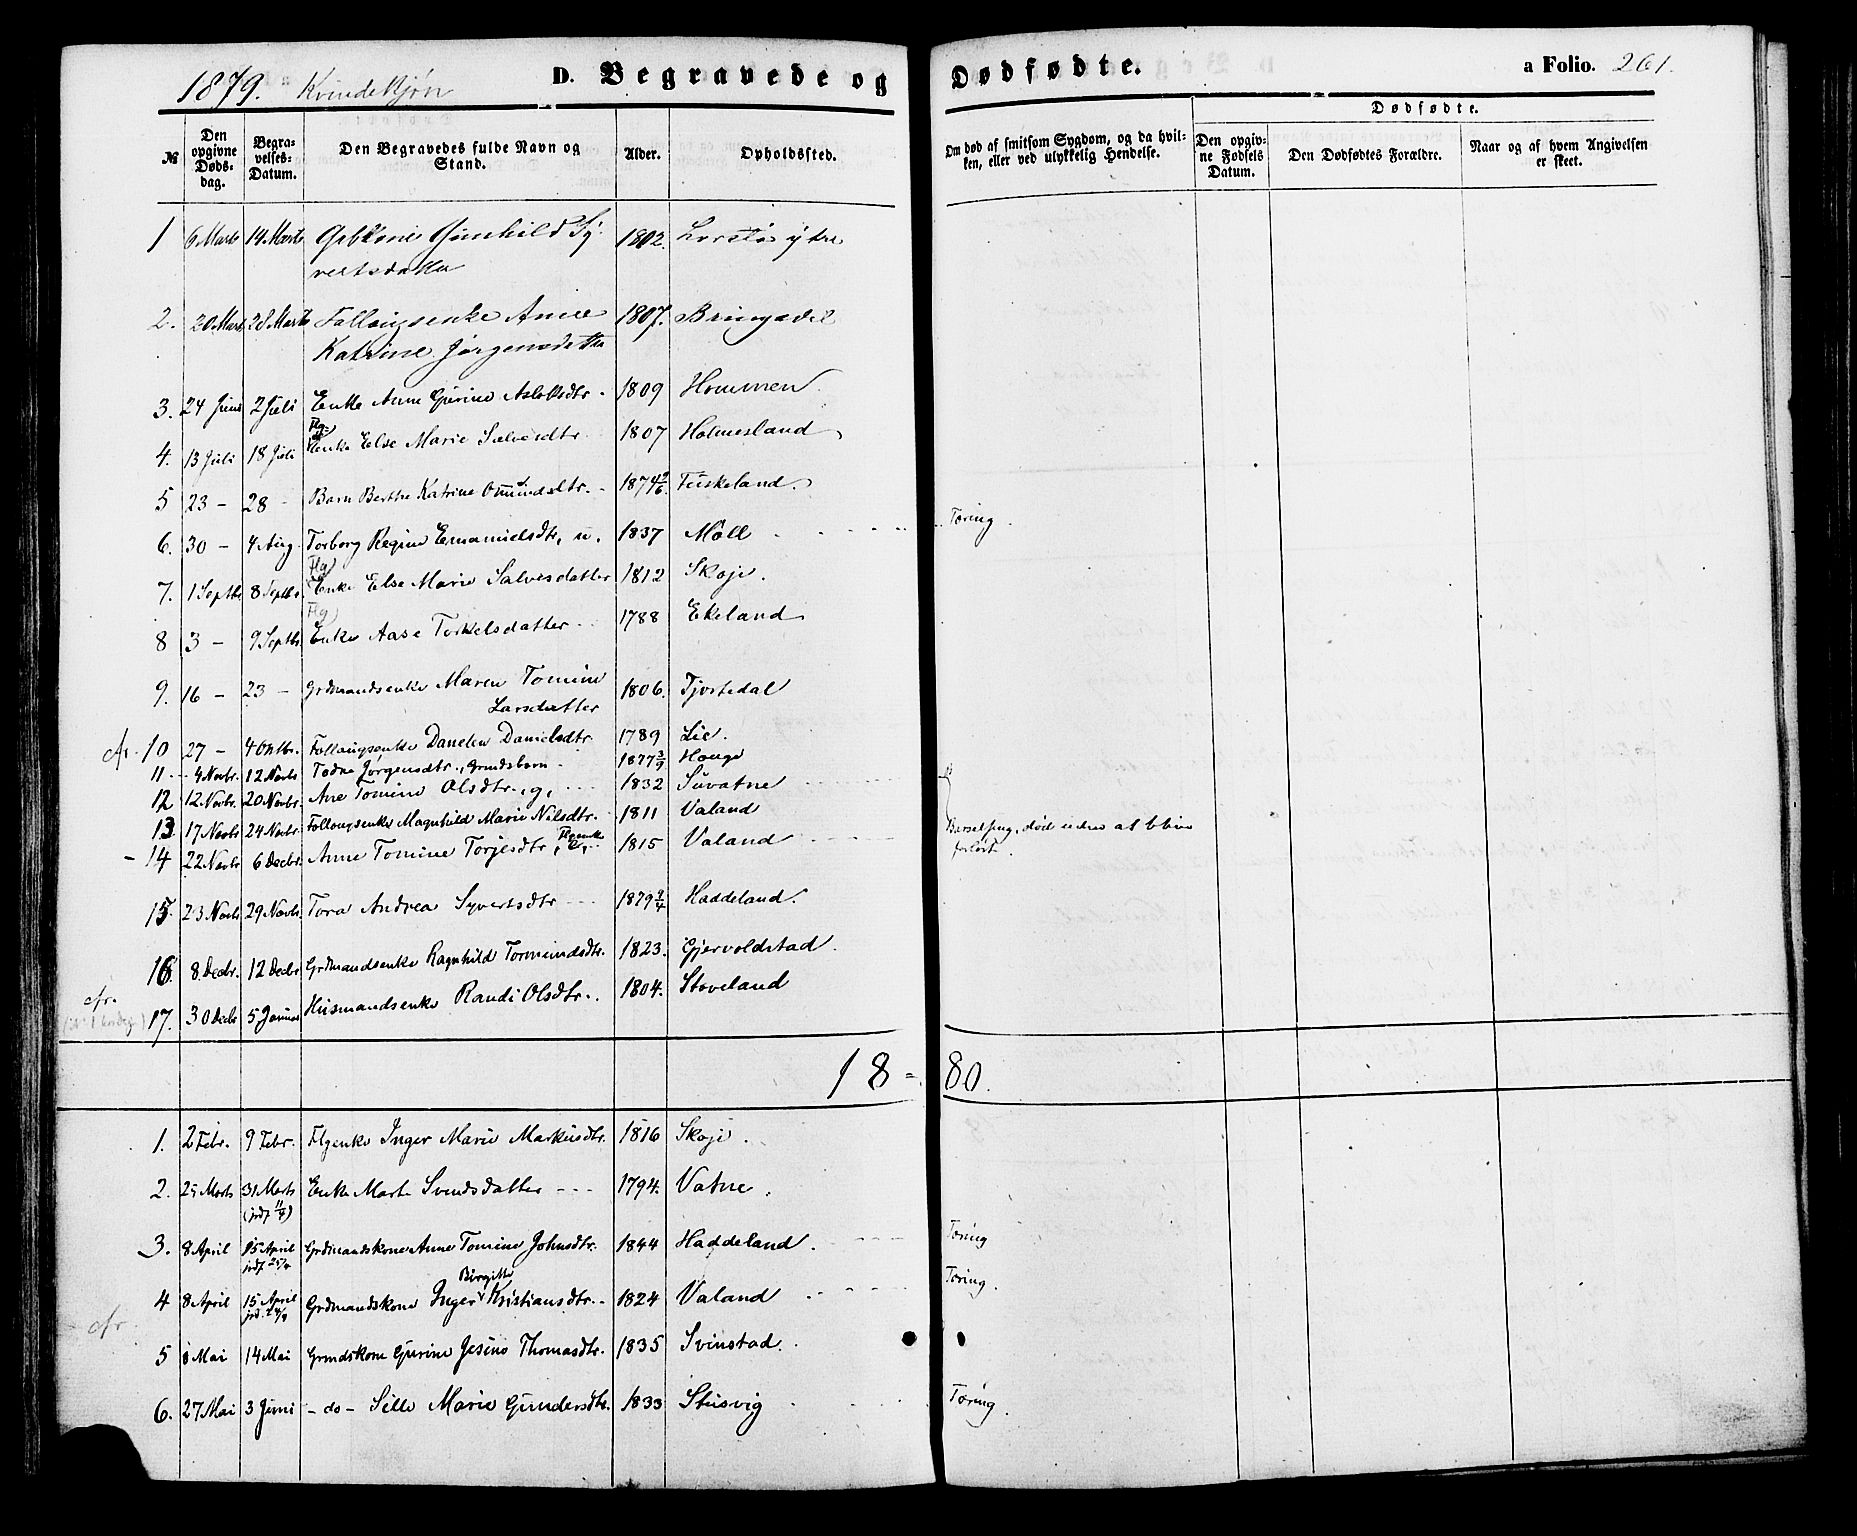 1879. Kvindekjøn D. Begravede og Dødfødte. a Folio. 261.
№ Den opgivne Dødsdag. Begravelses-Datum. Den Begravedes fulde Navn og Stand. Alder. Opholdssted. Om død af smitsom Sygdom, og da hvilken, eller ved ulykkelig Hendelse. Dødfødte. Den opgivne Fødsels Datum. Den Dødfødtes Forældre. Naar og af hvem Angivelsen er skeet.
1 6 Marts 14 Marts Gunhild Sy-
vertsdatter 1802. ytre
2. 20 Marts 28 Marts Follaugsenke Anne 1807. Bringsdal
Katrine Jørgensdatter
3. 24 Juni 2 Juli Enke Anne Gurine Aslaksdtr. 1809 Hommen
4. 13 Juli 18 Juli Flg. Enke Else Marie Salvesdtr. 1807 Holmesland
5 23 - 28 - Barn Berthe Katrine Omundsdtr. 1874 2/6. Tuskeland.
6. 30 - 4 Aug. Torborg Regine Emanuelsdtr, u. 1837 Moll Tæring.
7. 1 Septbr 8 Septbr. Flg Enke Else Marie Salvesdatter 1812 Skoje.
8 3 - 9 Septbr. Flg Enke Aase Torkelsdatter 1788 Ekeland
9. 16 - 23 - Grdmandsenke Maren Tomine
Larsdatter 1806. Tjostedal
cfr. 10 27 - 4 Oktbr. Follaugsenke Danelen Danielsdtr 1789 Lie.
11 4 Novbr. 12 Novbr Todne Jørgensdtr., Grmdsbarn 1877 3/9 Houge
12 12 Novbr. 20 Novbr. Ane Tomine Olsdtr., g, 1832 Suvatne
13 17 Novbr 24 Novbr. Follougsenke Magnhild Marie Nilsdtr. 1811 Valand Barselseng, død uden at blive
forløst.
- 14 22 Novbr 6 Decbr. Anne Tomine Torjesdtr, Flgenke 1815 Valand
15 23 Novbr 29 Novbr. Tora Andrea Syvertsdtr 1879 9/4 Haddeland.
16. 8. Decbr. 12 Decbr Grdmandsenke Ragnhild Tormundsdtr. 1823. Gjervoldstad
cfr. 17. 30 Decbr 5 Januar Husmandsenke Randi Olsdtr. 1804. Stoveland
18 = 80.
1. 2 Febr. 9 Febr. Flgenke Inger Marie Markusdtr. 1816 Skoje.
2. 25 Marts 31 Marts Enke Marte Svendsdatter 1794. Vatne.
(jrdf 11/4)
3. 8 April 15 April Grdmandskone Anne Tomine Johnsdtr. 1844 Haddeland. Tæring
jrdf 25/4
Birgitte
4 8 April 15 April Grdmandskone Inger Kristiansdtr. 1824 Valand Tæring.
jrd. 24/4
cfr
5 8 Mai 14 Mai Grmdskone Gurine Jesine Thomasdtr. 1835 Svinstad.
6. 27 Mai 3 Juni - do - Sille Marie Gundersdtr. 1833 Stusvig Tæring.